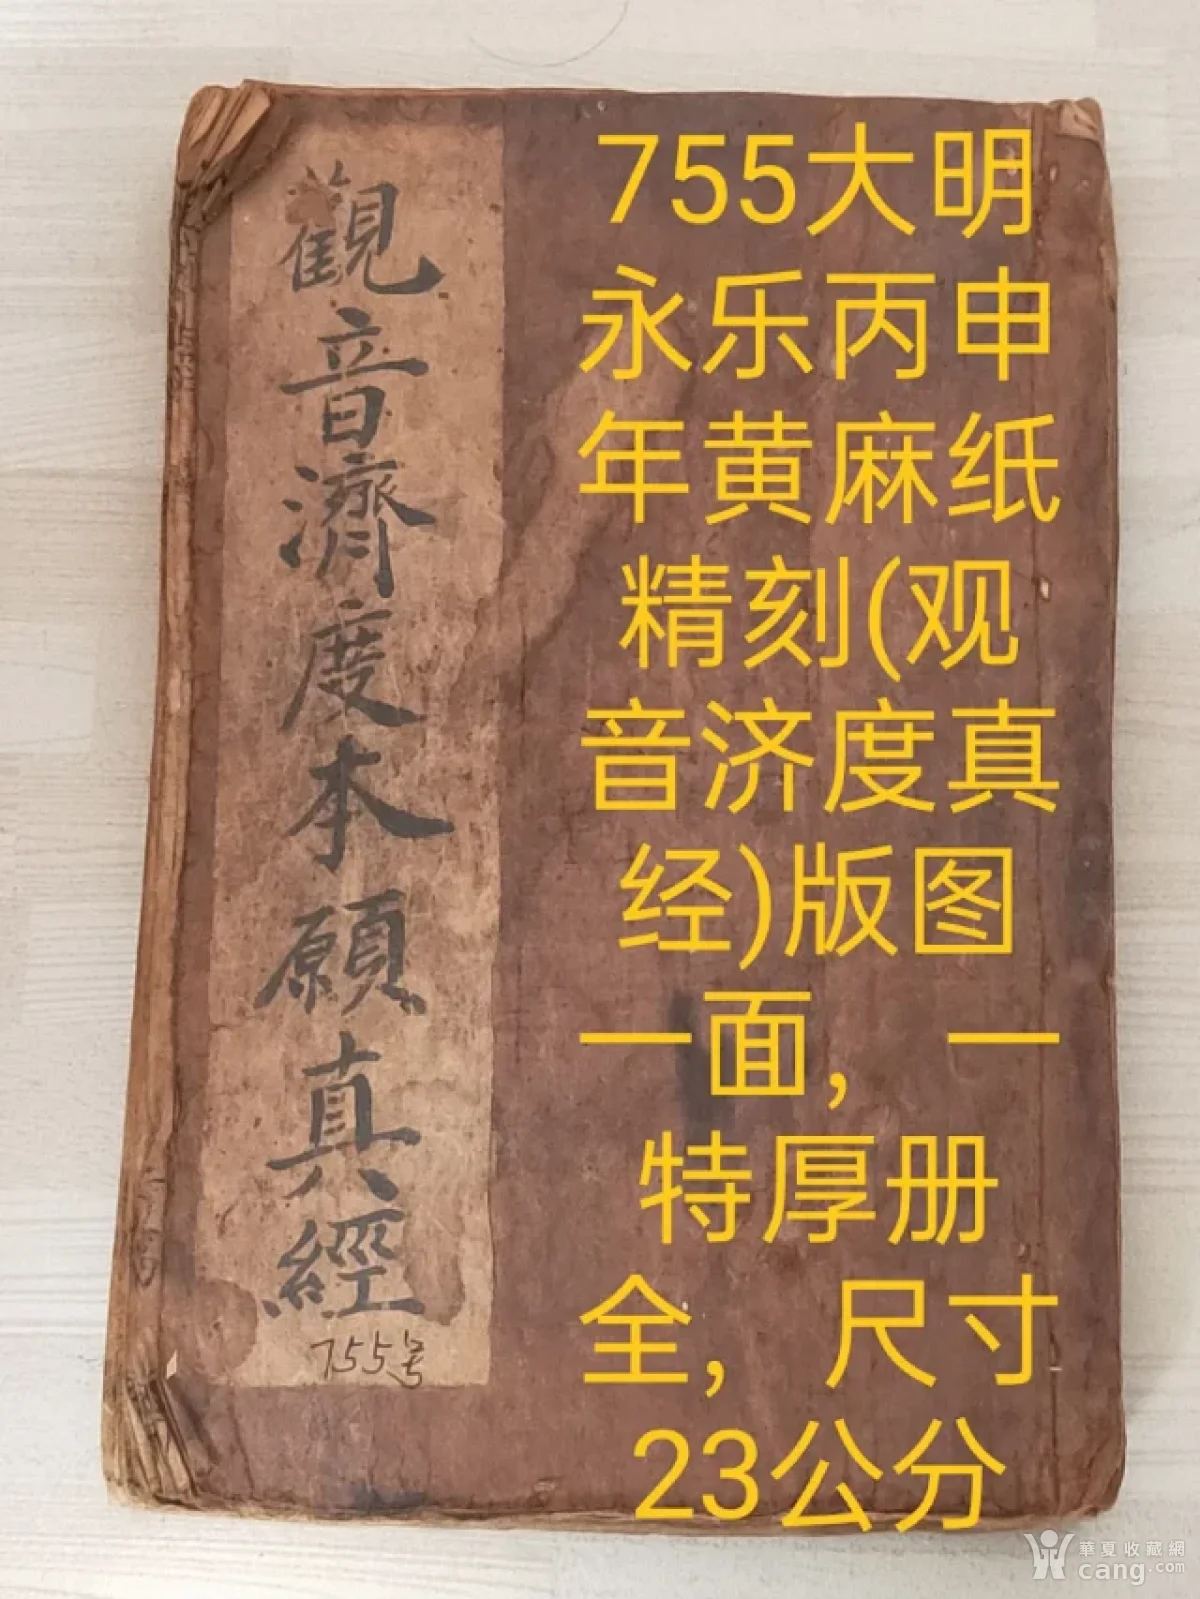 觀音濟度本願真經
755号
755大明
永乐丙申
年黄麻纸
精刻(观
音济度真
经)版图
一面，一
特厚册
全，尺寸
23公分
華夏收藏網
cang.com